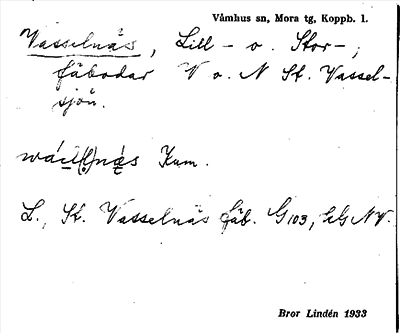 Våmhus sn, Mora tg, Koppb. l.
Vasselnäs, Lill- o. Stor-;
fäbodar V o. N St. Vassel-
sjön.
Kam.
L., St. Vasselnäs fäb. G103, NV.
Bror Lindén 1933